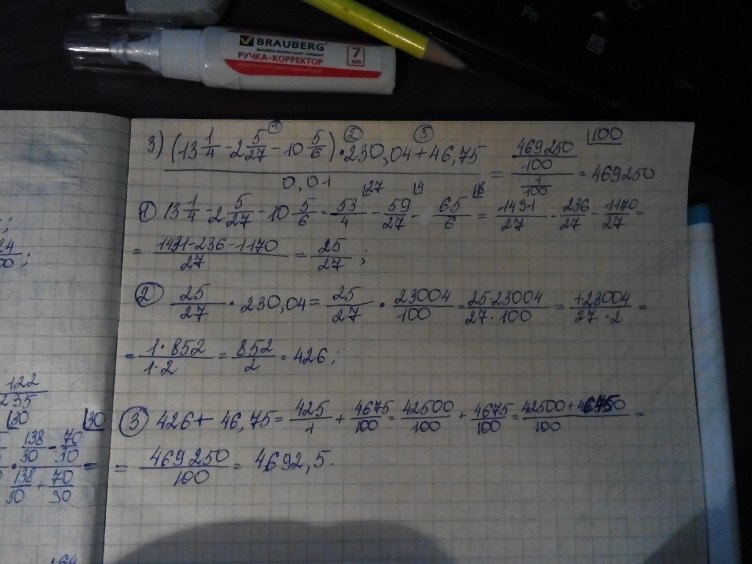 BRAUBERG
РУЧКА-КОРРЕКТОР
7 мл
Fn
① ② ③
3) (13 1/4 - 2 5/27 - 10 5/6) · 230,04 + 46,75 / 0,01 = 469250/100 / 1/100 = 469250
100
① 13 1/4 - 2 5/27 - 10 5/6 = 53/4 - 59/27 - 65/6 = 1431/27 - 236/27 - 1170/27 =
= 1431-236-1170 / 27 = 25/27 ;
② 25/27 · 230,04 = 25/27 · 23004/100 = 25·23004 / 27·100 = 1·23004 / 27·2 =
= 1·852 / 1·2 = 852/2 = 426 ;
③ 426 + 46,75 = 425/1 + 4675/100 = 42500/100 + 4675/100 =
= 469250/100 = 4692,5.
122
235
30 30
138/30 - 70/30
138/30 + 70/30 =